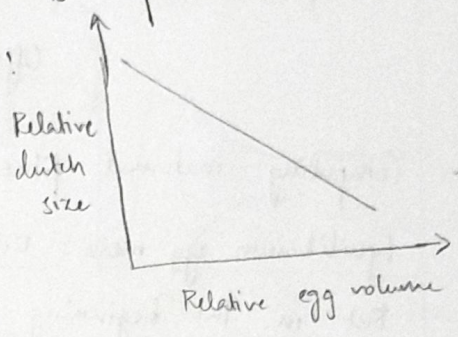 Relative
clutch
size
Relative egg volume